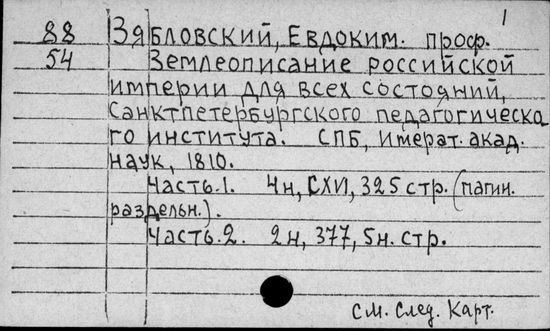 1
88 Зябловский, Евдоким. проф.
54 Землеописание российской
империи для всех состояний,
Санктпетербургского педагогическа
го института. СПБ, Имерат. акад.
наук, 1810.
Часть.1. 4н, CXVI, 325 стр. (пагин.
раздельн.).
Часть.2. 2н, 377, 5н. стр.
См. след. карт.